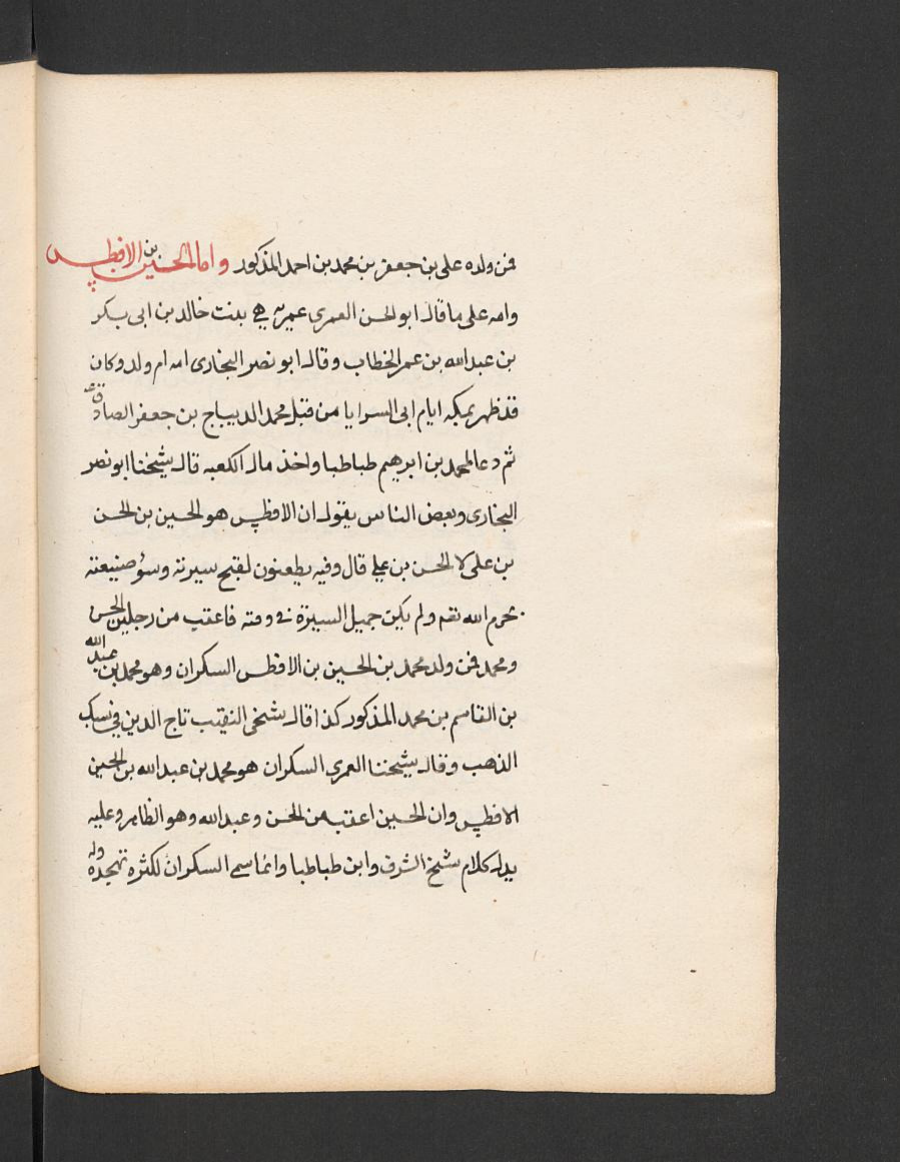 فمن ولده على بن جعفر بن محمد بن احمد المذكور واما الحسين بن الافطس
وامه على ما قال ابو الحسن العمرى عمريه هى بنت خالد بن ابى بكر
بن عبد الله بن عمر الخطاب وقال ابو نصر البخارى امه ام ولد وكان
قد ظهر بمكه ايام ابى السرايا من قبل محمد الديباج بن جعفر الصادق
ثم دعا لمحمد بن ابرهيم طباطبا واخذ مال الكعبه قال شيخنا ابو نصر
البخارى وبعض الناس يقول ان الافطس هو الحسين بن الحسن
بن على لا الحسن بن على قال وفيه يطعنون لقبح سيرته وسؤ صنيعته
بحرم الله تعم ولم يكن جميل السيرة فى وقته فاعقب من رجلين الحسن
ومحمد فمن ولد محمد بن الحسين بن الافطس السكران وهو محمد بن عبد الله
بن القاسم بن محمد المذكور كذا قال شيخى النقيب تاج الدين فى سبك
الذهب وقال شيخنا العمرى السكران هو محمد بن عبد الله بن الحسين
الافطس وان الحسين اعقب من الحسن وعبد الله وهو الظاهر وعليه
يدل كلام شيخ الشرف وابن طباطبا وانما سمى السكران لكثره تهجده وله